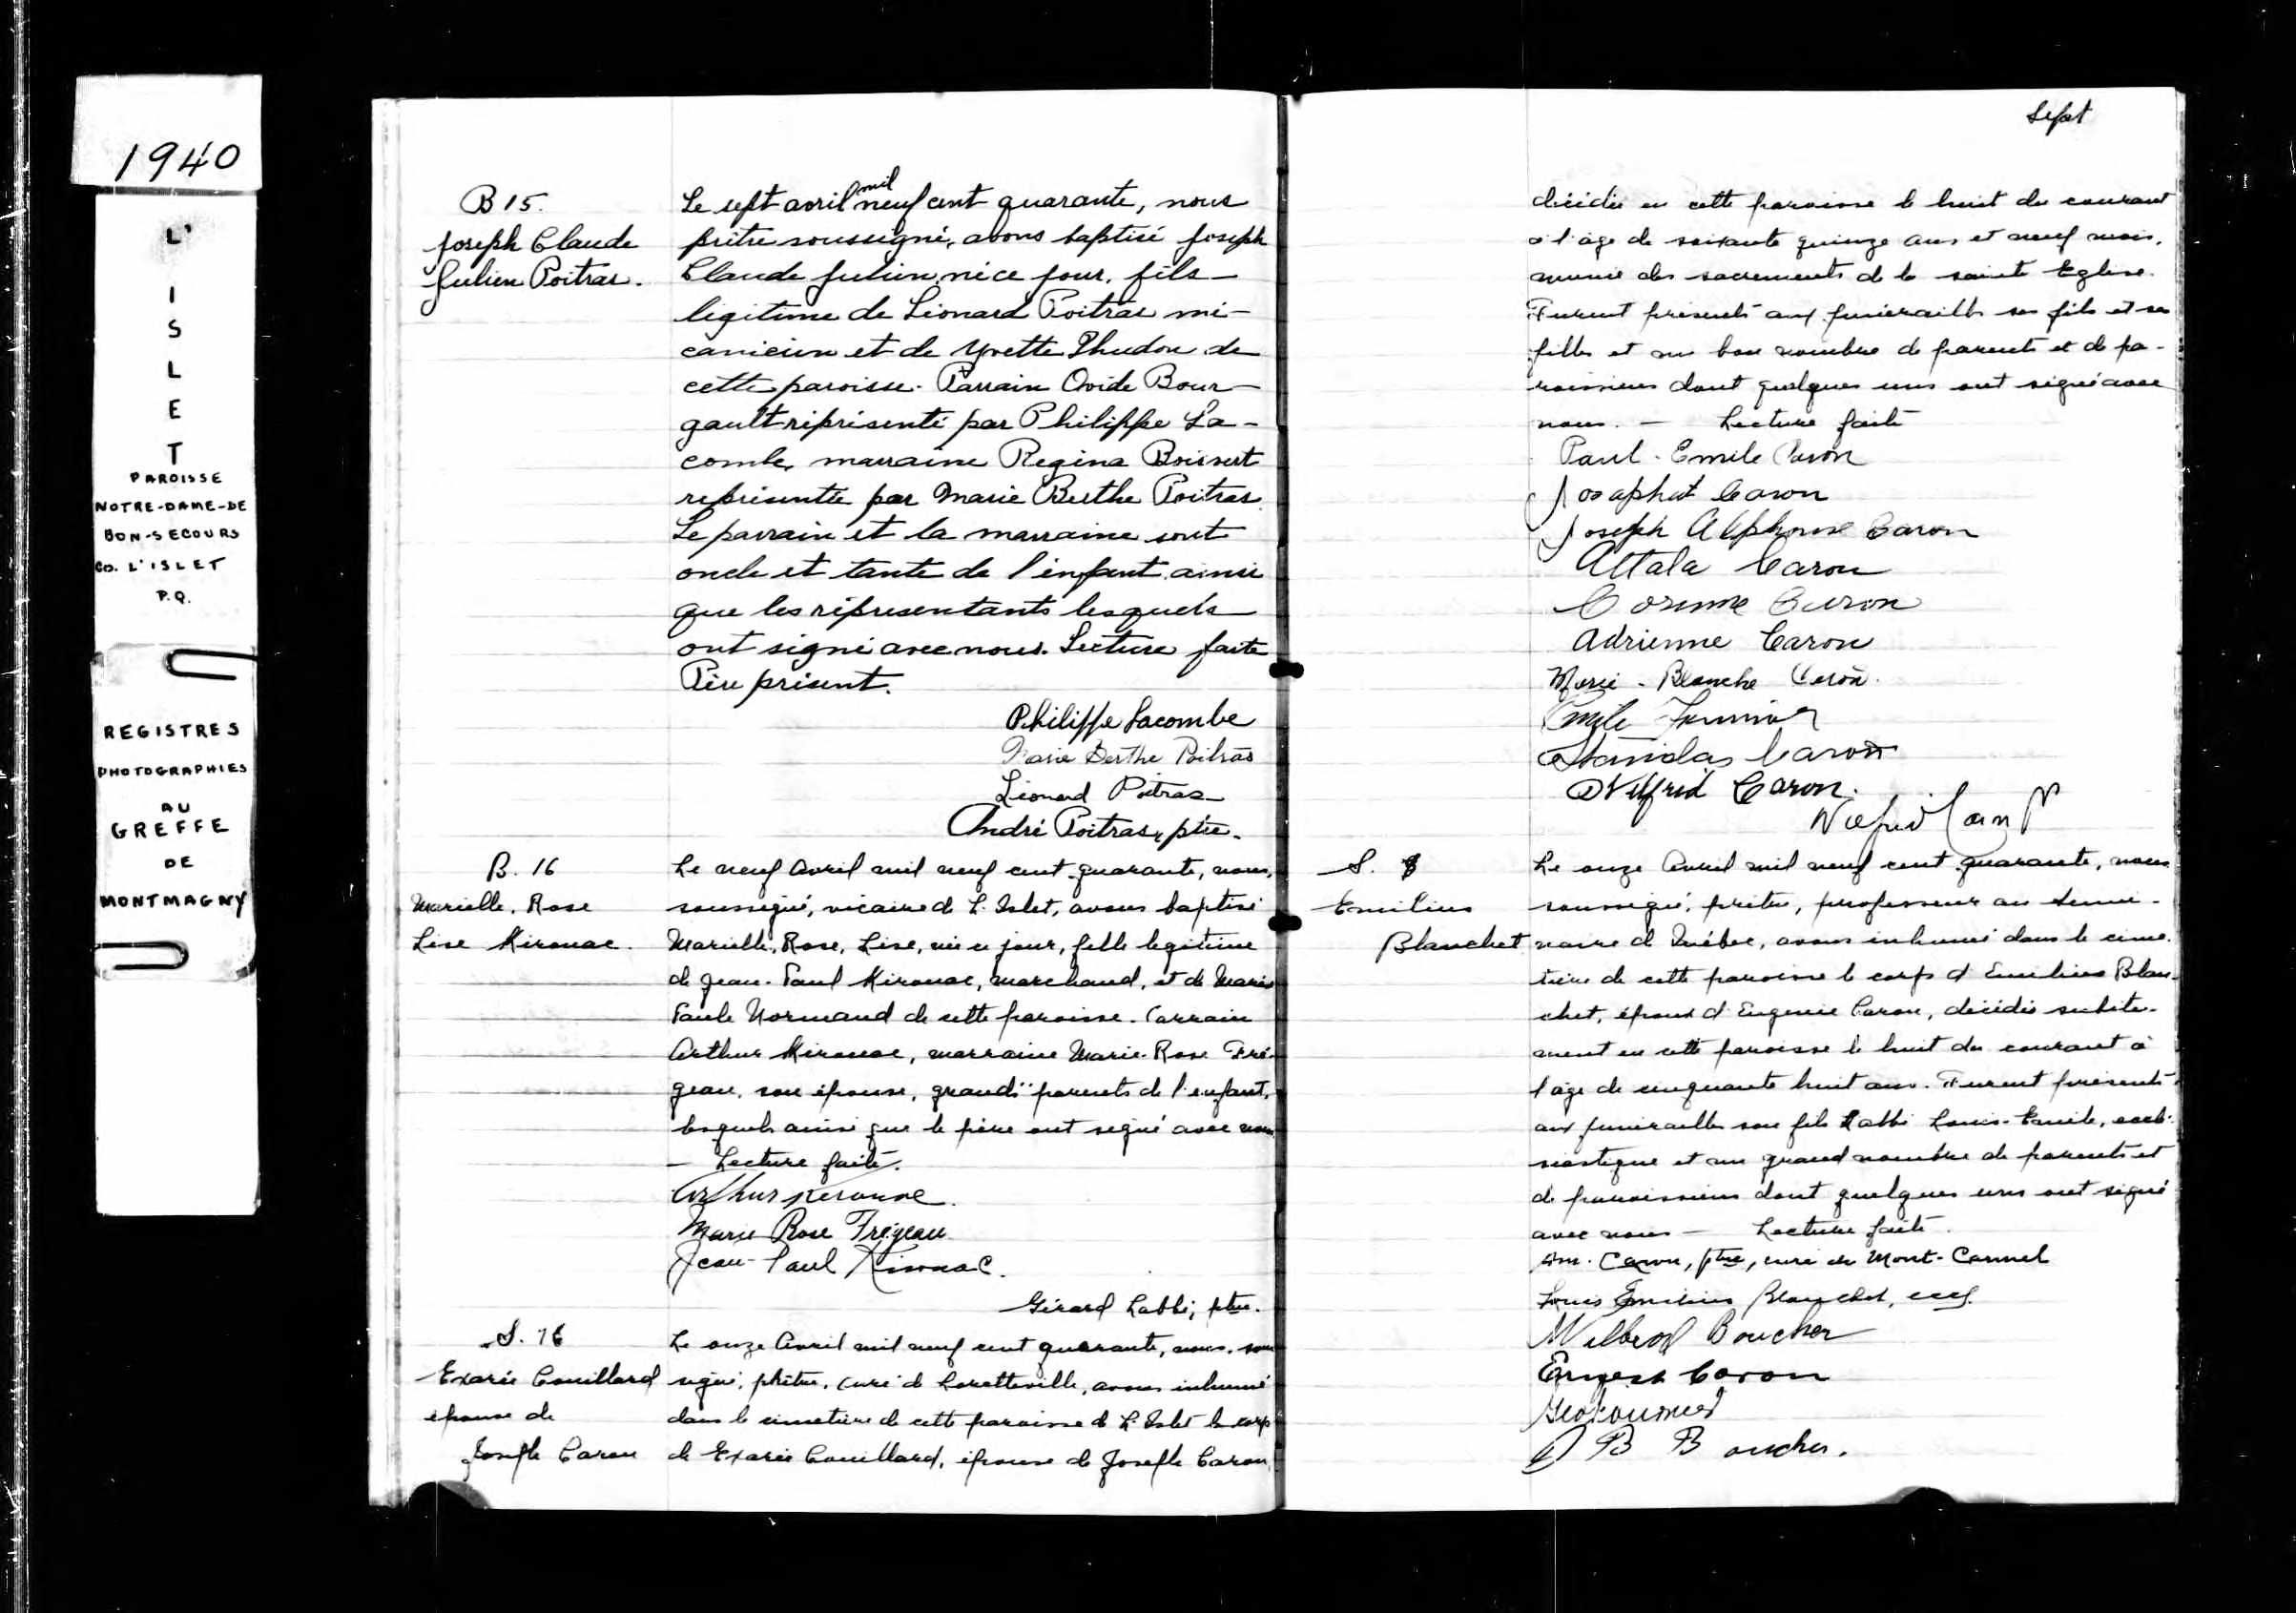 1940
L'
I
S
L
E
T
PAROISSE
NOTRE-DAME-DE
BON-SECOURS
CO. L'ISLET
P.Q.
REGISTRES
PHOTOGRAPHIES
AU
GREFFE
DE
MONTMAGNY
B 15.
Joseph Claude
Julien Poitras.
Le sept avril mil neuf cent quarante, nous
prêtre soussigné, avons baptisé Joseph
Claude Julien, né ce jour, fils
légitime de Léonard Poitras mé-
canicien et de Yvette Phudon de
cette paroisse. Parrain Ovide Bour-
gault représenté par Philippe La-
combe, marraine Regina Boisvert
représentée par Marie Berthe Poitras.
Le parrain et la marraine sont
oncle et tante de l'enfant ainsi
que les réprésentants lesquels
ont signé avec nous. Lecture faite
Père présent.
Philippe Lacombe
Marie Berthe Poitras
Léonard Poitras
André Poitras, ptre.
B. 16
Marielle. Rose
Lise Kirouac.
Le neuf Avril mil neuf cent quarante, nous,
soussigné, vicaire de L'Islet, avons baptisé
Marielle, Rose, Lise, née ce jour, fille légitime
de Jean-Paul Kirouac, marchand, et de Marie
Paule Normand de cette paroisse. Parrain
Arthur Kirouac, marraine Marie-Rose Fré-
geau, son épouse, grands-parents de l'enfant,
lesquels ainsi que le père ont signé avec nous
— Lecture faite.
Arthur Kirouac.
Marie Rose Frégeau
Jean-Paul Kirouac.
Gérard Labbé, ptre.
S. 16
Exarée Couillard
épouse de
Joseph Caron
Le onze Avril mil neuf cent quarante, nous, sous
signé, prêtre, curé de Loretteville, avons inhumé
dans le cimetière de cette paroisse de L'Islet le corps
de Exarée Couillard, épouse de Joseph Caron,
Sept
décédée en cette paroisse le huit du courant
à l'âge de soixante quinze ans et neuf mois,
munie des sacrements de la sainte Eglise.
Furent présents aux funérailles ses fils et ses
filles et un bon nombre de parents et de pa-
roissiens dont quelques uns ont signé avec
nous. — Lecture faite
Paul-Emile Caron
Josaphat Caron
Joseph Alphonse Caron
Attala Caron
Corinne Caron
Adrienne Caron
Marie-Blanche Caron.
Emile Fournier
Stanislas Caron
Wilfrid Caron.
Wilfrid Caron ptr
S. 8
Emilius
Blanchet
Le onze Avril mil neuf cent quarante, nous
soussigné, prêtre, professeur au sémi-
naire de Québec, avons inhumé dans le cime-
tière de cette paroisse le corps d'Emilius Blan-
chet, époux d'Eugenie Caron, décédé subite-
ment en cette paroisse le huit du courant à
l'âge de cinquante huit ans. Furent présents
aux funérailles son fils l'abbé Louis-Emile, ecclé-
siastique et un grand nombre de parents et
de paroissiens dont quelques uns ont signé
avec nous — Lecture faite.
Caron, ptre, curé de Mont-Carmel
Louis Emilius Blanchet, eccl.
Wilbrod Boucher
Ernest Caron
B Boucher.